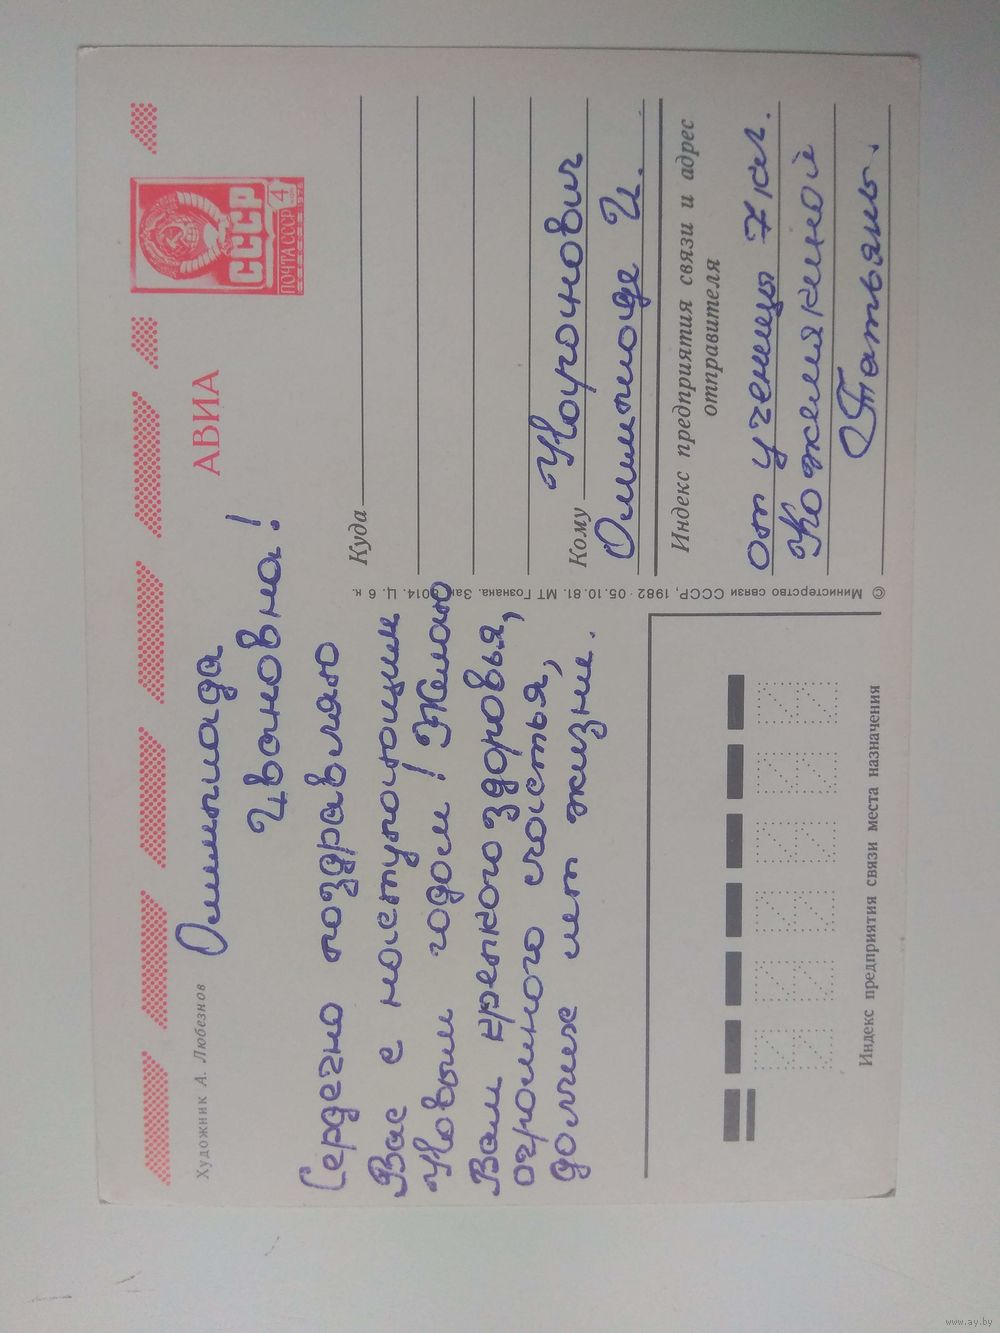 Художник А. Любезнов
АВИА
СССР
ПОЧТА СССР 4
1976
Олимпиада
Ивановна!
Сердечно поздравляю
Вас с наступающим
Новым годом! Желаю
Вам крепкого здоровья,
огромного счастья,
долгих лет жизни.
Куда
Кому
Олимпиаде И.
Индекс предприятия связи и адрес
отправителя
от ученицы 7 кл.
Кожемякиной
Татьяны.
© Министерство связи СССР, 1982 · 05.10.81. МТ Гознака. Зак. 014. Ц. 6 к.
Индекс предприятия связи места назначения
www.ay.by